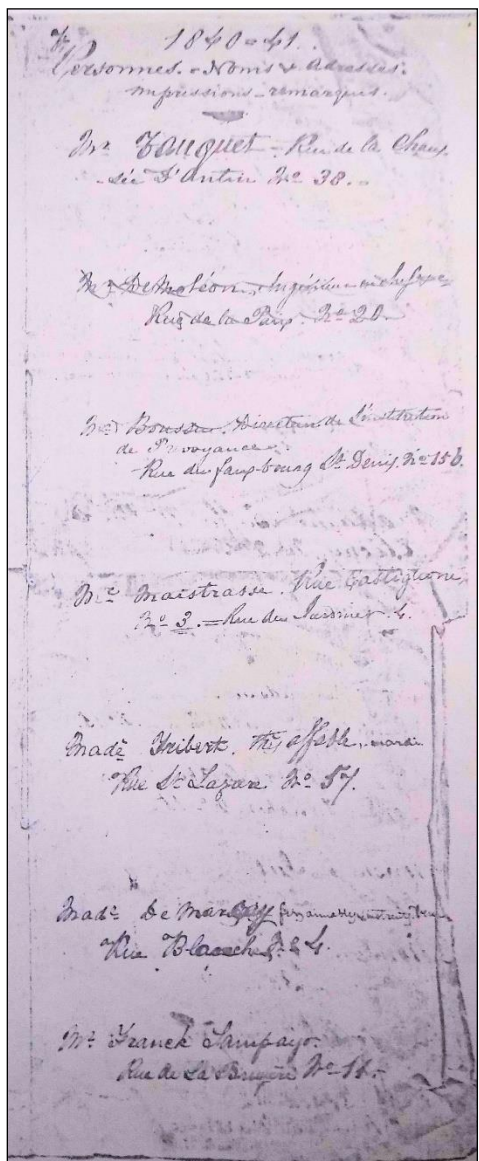 1840-41.
Personnes. - Noms & Adresses.
Impressions - remarques.
Mr. Fauquet - Rue de la Chaus-
sée d'Antin No 38. -
Mr. De Moléon. Ingénieur en chef
Rue de la Paix. No 20
Mr. Directeur de l'institution
de Prévoyance
Rue du faux-bourg St. Denis, No 156.
Mr. Maistrasse. Rue Castiglione
No 3. = Rue des 4.
Made. Hribert. affable, mardi
Rue St. Lazare No 57.
Made. De
Rue Blanche No 4.
Mr. Franck Sampayo.
Rue de La Bruyère No